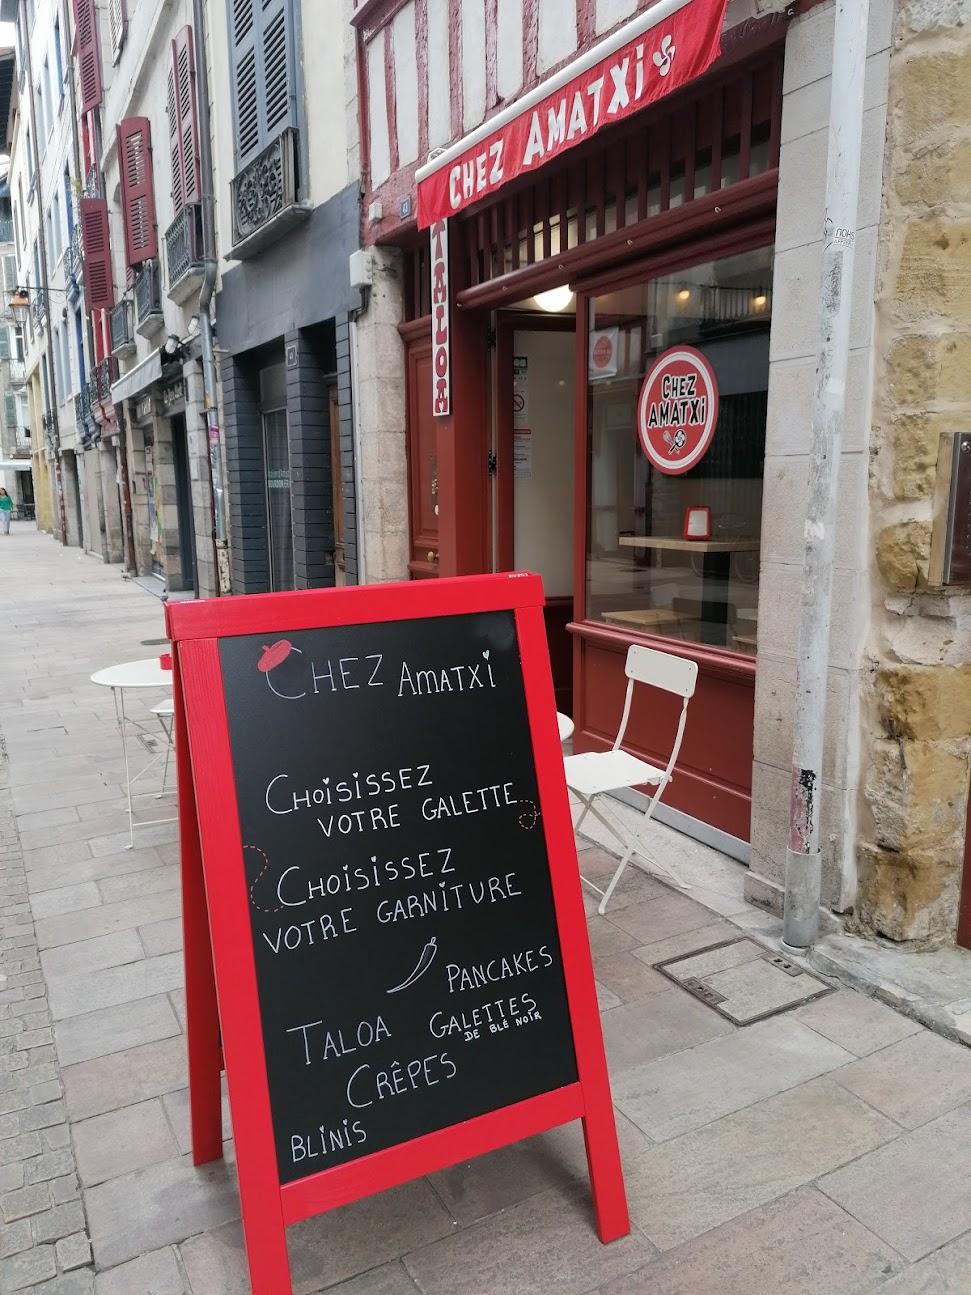 CHEZ AMATXI
TALOA
CHEZ
AMATXI
CHEZ AMATXI
CHOISISSEZ
VOTRE GALETTE
CHOISISSEZ
VOTRE GARNITURE
PANCAKES
TALOA
GALETTES
DE BLÉ NOIR
CRÊPES
BLINIS